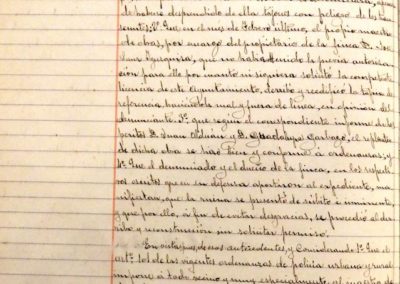 de haberse desprendido de ella tejones con peligro de los tran
seuntes. 2º Que en el mes de Febrero último, el propio maestro
de obras, por encargo del propietario de la finca D. José
que no había tenido la previa autoriza
ción para ello por cuanto ni siquiera solicitó la competente
licencia de este Ayuntamiento, derribó y reedificó la tapia de
referencia haciéndolo mal y fuera de línea, en opinión del
denunciante. 3º que según el correspondiente informe de los
peritos D. Juan y D. Guadalupe el replanteo
de dicha obra se hizo bien y conforme á ordenanzas, y
4º Que el denunciado y el dueño de la finca, en los respecti
vos escritos que en su defensa aportaron al expediente, ma
nifiestan, que la ruina se presentó de súbito é inminente,
y que por ello, á fin de evitar desgracias, se procedió al de
rribo y reconstrucción sin solicitar permiso.
En vista pues, de esos antecedentes, y Considerando: 1º Que el
artº. 801 de las vigentes ordenanzas de policía urbana y rural
impone á todo vecino y muy especialmente al maestro de